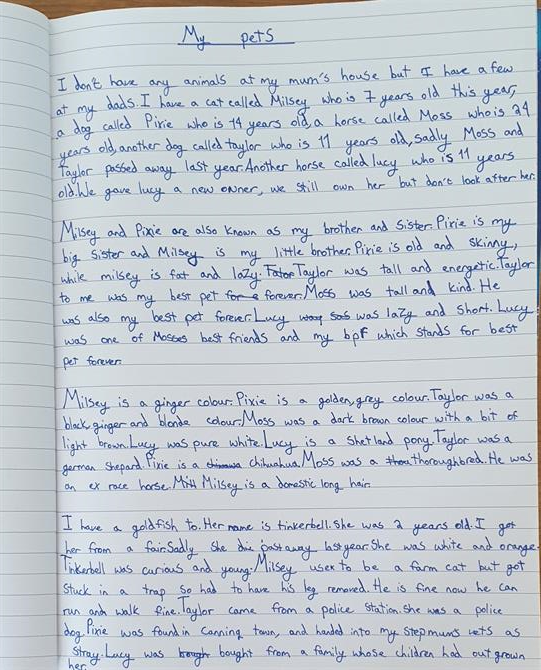 My pets
I don't have any animals at my mum's house but I have a few
at my dads. I have a cat called Milsey who is 7 years old this year,
a dog called Pixie who is 14 years old, a horse called Moss who is 24
years old, another dog called taylor who is 11 years old, sadly Moss and
Taylor passed away last year. Another horse called lucy who is 11 years
old. We gave lucy a new owner, we still own her but don't look after her.
Milsey and Pixie are also known as my brother and sister. Pixie is my
big sister and Milsey is my little brother. Pixie is old and skinny,
while milsey is fat and lazy. Taylor was tall and energetic. Taylor
to me was my best pet forever. Moss was tall and kind. He
was also my best pet forever. Lucy was lazy and short. Lucy
was one of Mosses best friends and my bpf which stands for best
pet forever.
Milsey is a ginger colour. Pixie is a golden, grey colour. Taylor was a
black, ginger and blonde colour. Moss was a dark brown colour with a bit of
light brown. Lucy was pure white. Lucy is a shetland pony. Taylor was a
german shepard. Pixie is a chihuahua. Moss was a thoroughbred. He was
an ex race horse. Milsey is a domestic long hair.
I have a goldfish to. Her name is tinkerbell. She was 2 years old. I got
her from a fair. Sadly she past away last year. She was white and orange.
Tinkerbell was curious and young. Milsey used to be a farm cat but got
stuck in a trap so had to have his leg removed. He is fine now he can
run and walk fine. Taylor came from a police station. She was a police
dog. Pixie was found in Canning town, and handed into my stepmums vets as
stray. Lucy was bought from a family whose children had out grown
her.